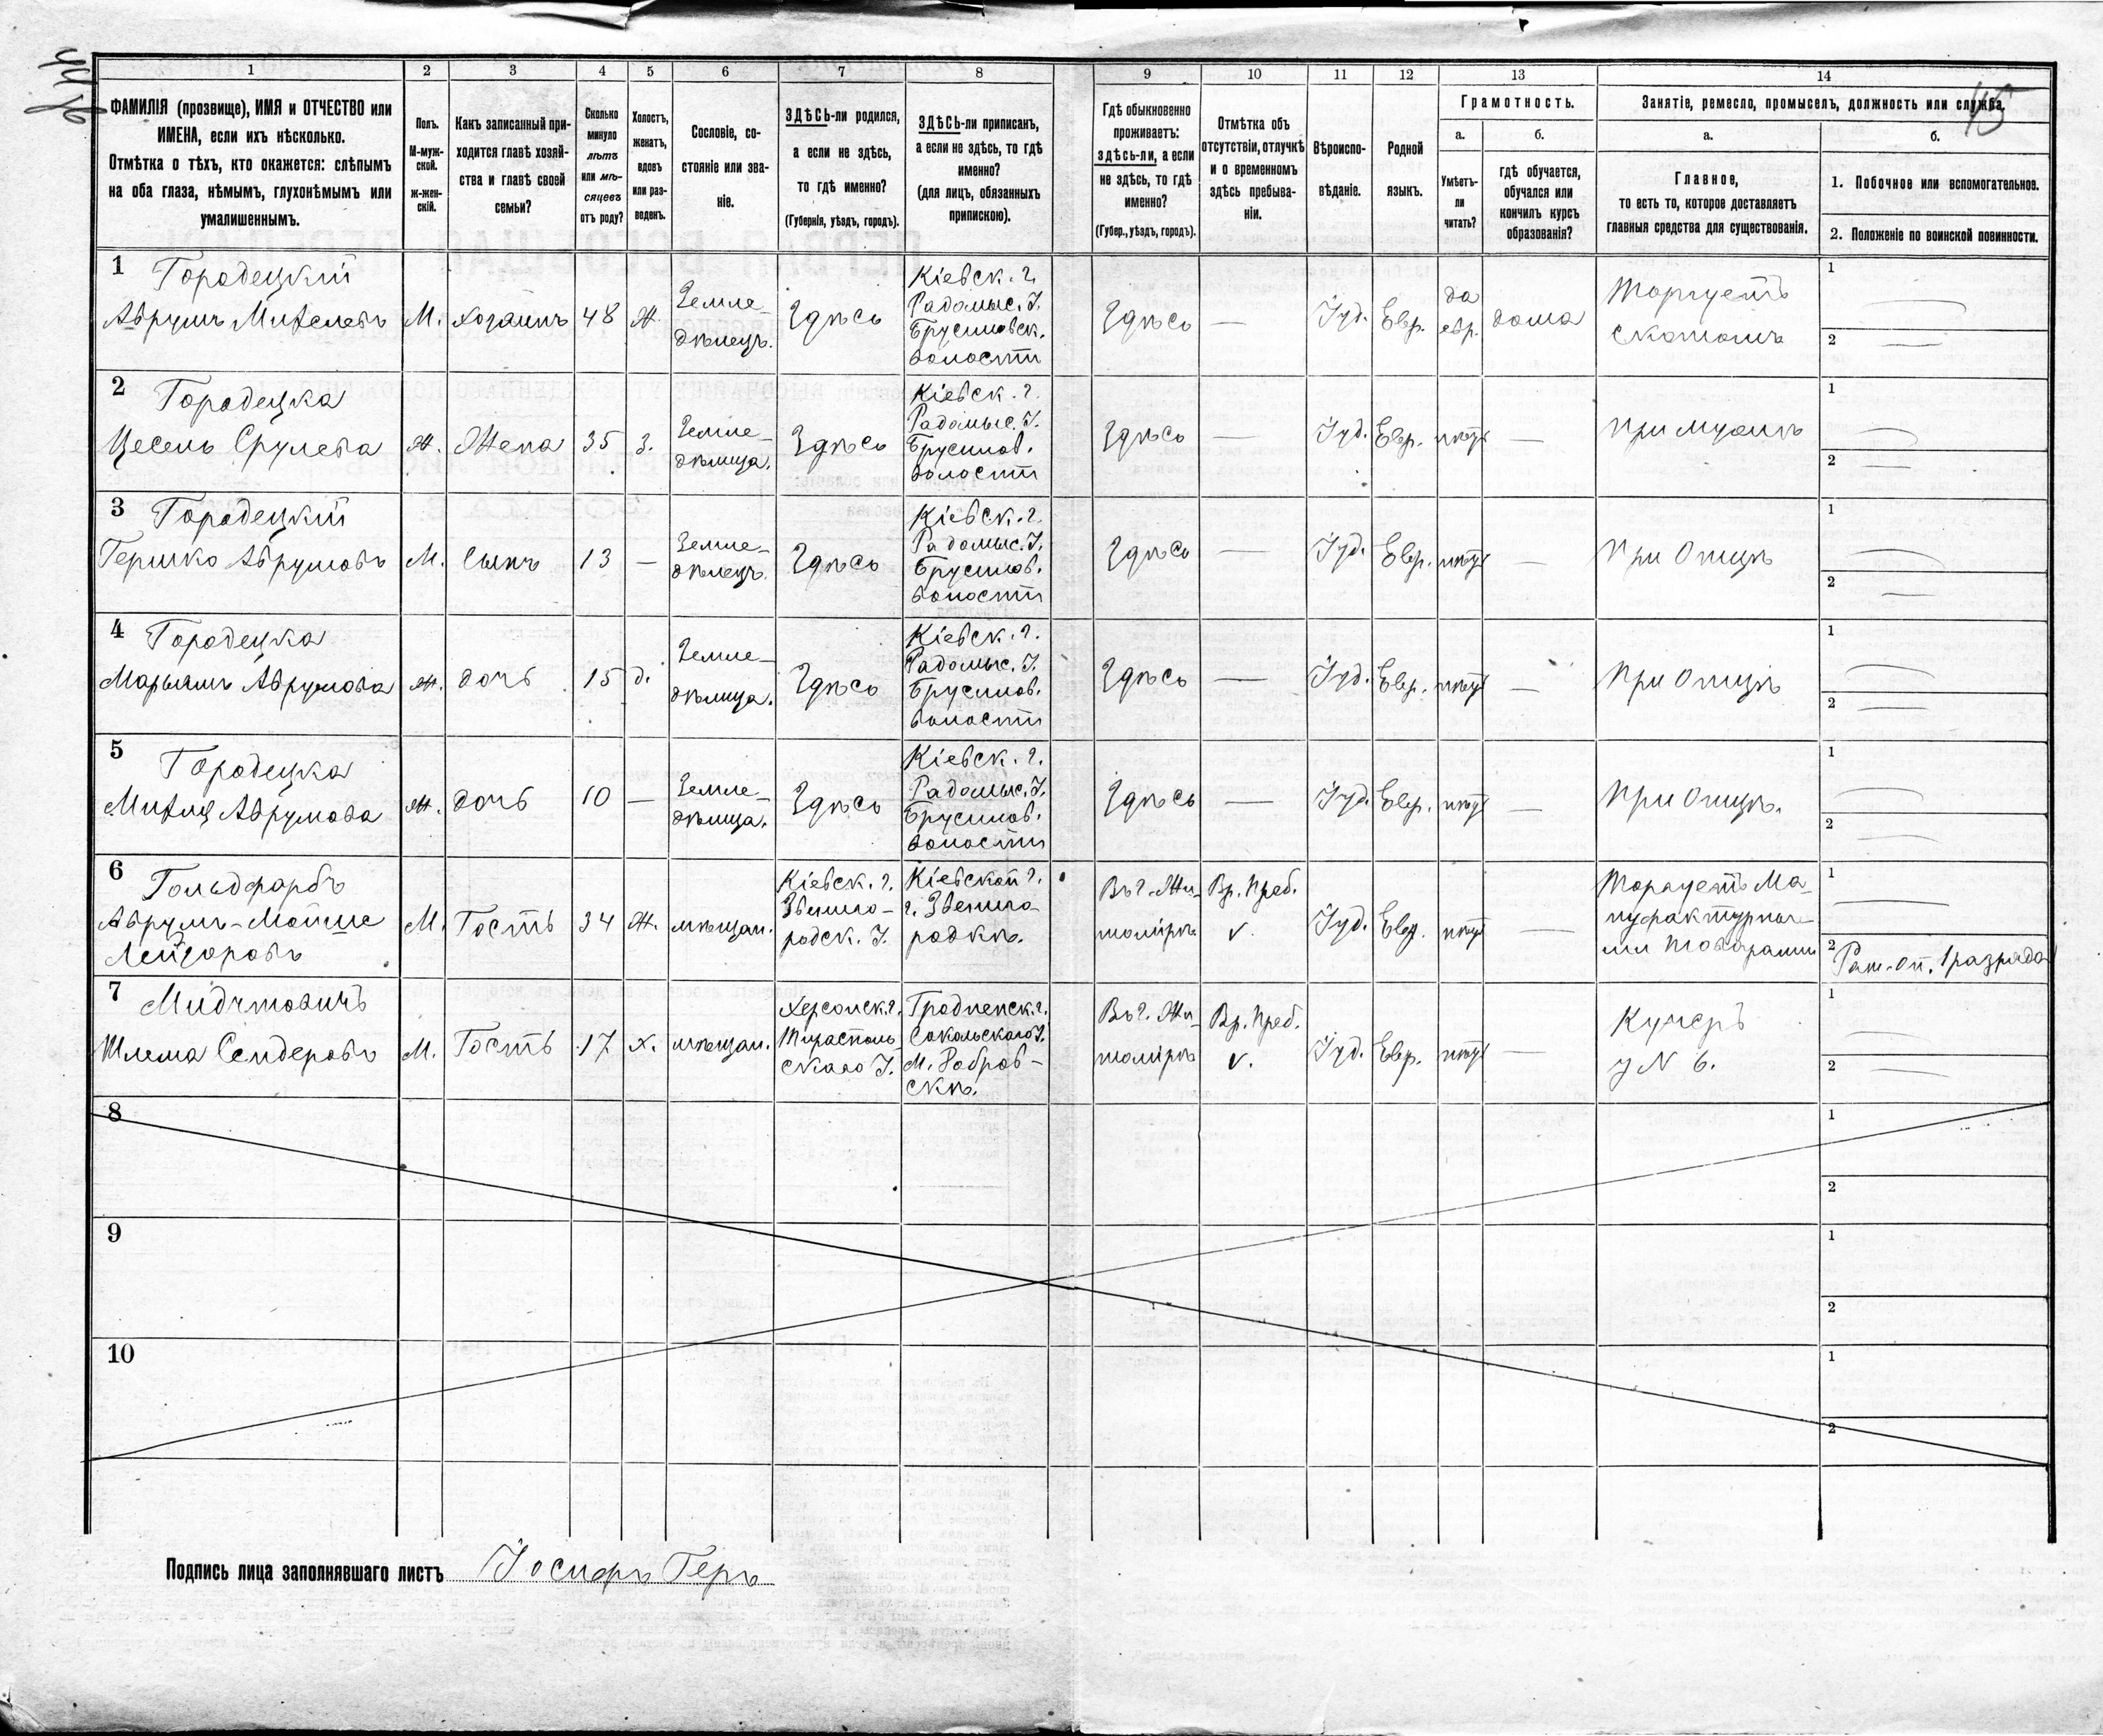 44 об
45
1 2 3 4 5 6 7 8 9 10 11 12 13 14
ФАМИЛІЯ (прозвище), ИМЯ и ОТЧЕСТВО или
ИМЕНА, если ихъ нѣсколько.
Отмѣтка о тѣхъ, кто окажется: слѣпымъ
на оба глаза, нѣмымъ, глухонѣмымъ или
умалишеннымъ.
Полъ.
М-муж-
ской.
ж-жен-
скій.
Какъ записанный при-
ходится главѣ хозяй-
ства и главѣ своей
семьи?
Сколько
минуло
лѣтъ
или мѣ-
сяцевъ
отъ роду?
Холостъ,
женатъ,
вдовъ
или раз-
веденъ.
Сословіе, со-
стояніе или зва-
ніе.
ЗДѢСЬ-ли родился,
а если не здѣсь,
то гдѣ именно?
(Губернія, уѣздъ, городъ).
ЗДѢСЬ-ли приписанъ,
а если не здѣсь, то гдѣ
именно?
(для лицъ, обязанныхъ
припискою).
Гдѣ обыкновенно
проживаетъ:
здѣсь-ли, а если
не здѣсь, то гдѣ
именно?
(Губер., уѣздъ, городъ).
Отмѣтка объ
отсутствіи, отлучкѣ
и о временномъ
здѣсь пребыва-
ніи.
Вѣроиспо-
вѣданіе.
Родной
языкъ.
Грамотность.
а.
Умѣетъ-
ли
читать?
б.
гдѣ обучается,
обучался или
кончилъ курсъ
образованія?
Занятіе, ремесло, промыселъ, должность или служба.
а.
Главное,
то есть то, которое доставляетъ
главныя средства для существованія.
б.
1. Побочное или вспомогательное.
2. Положеніе по воинской повинности.
1
Городецкій
Аврумъ Михелевъ
М.
хозяинъ
48
Ж.
Земле-
дѣлецъ.
Здѣсь
Кіевск. г.
Радомыс. У.
Брусиловск.
волости
Здѣсь
—
Іуд.
Евр.
да
евр.
дома
Торгуетъ
скотомъ
1
2
2
Городецка
Цесель Срулева
Ж.
Жена
35
З.
Земле-
дѣлица.
Здѣсь
Кіевск. г.
Радомыс. У.
Брусилов.
волости
Здѣсь
—
Іуд.
Евр.
нѣтъ
—
При мужѣ
1
2
3
Городецкій
Гершко Аврумовъ
М.
Сынъ
13
—
Земле-
дѣлецъ.
Здѣсь
Кіевск. г.
Радомыс. У.
Брусилов.
волости
Здѣсь
—
Іуд.
Евр.
нѣтъ
—
При Отцѣ
1
2
4
Городецка
Марьямъ Аврумова
Ж.
дочь
15
д.
Земле-
дѣлица.
Здѣсь
Кіевск. г.
Радомыс. У.
Брусилов.
волости
Здѣсь
—
Іуд.
Евр.
нѣтъ
—
При Отцѣ
1
2
5
Городецка
Аврумова
Ж.
дочь
10
—
Земле-
дѣлица.
Здѣсь
Кіевск. г.
Радомыс. У.
Брусилов.
волости
Здѣсь
—
Іуд.
Евр.
нѣтъ
—
При Отцѣ.
1
2
6
Гольдфарбъ
Аврумъ-Мойше
Лейзоровъ
М.
Гость
34
Ж.
мѣщан.
Кіевск. г.
Звениго-
родск. У.
Кіевской г.
г. Звениго-
родкѣ.
Въ г. Жи-
томірѣ
Вр. Преб.
v.
Іуд.
Евр.
нѣтъ
—
Торгуетъ Ма-
нуфактурны-
ми товарами
1
2
Рат. Оп. 1 разряда
7
Шлема Сендеровъ
М.
Гость
17
Х.
мѣщан.
Херсонск. г.
Тирасполь-
скаго У.
Гродненск. г.
Сокольскаго У.
Въ г. Жи-
томірѣ
Вр. Преб.
v.
Іуд.
Евр.
нѣтъ
—
Кучеръ
у N 6.
1
2
8
1
2
9
1
2
10
1
2
Подпись лица заполнявшаго листъ Іосифъ Геръ